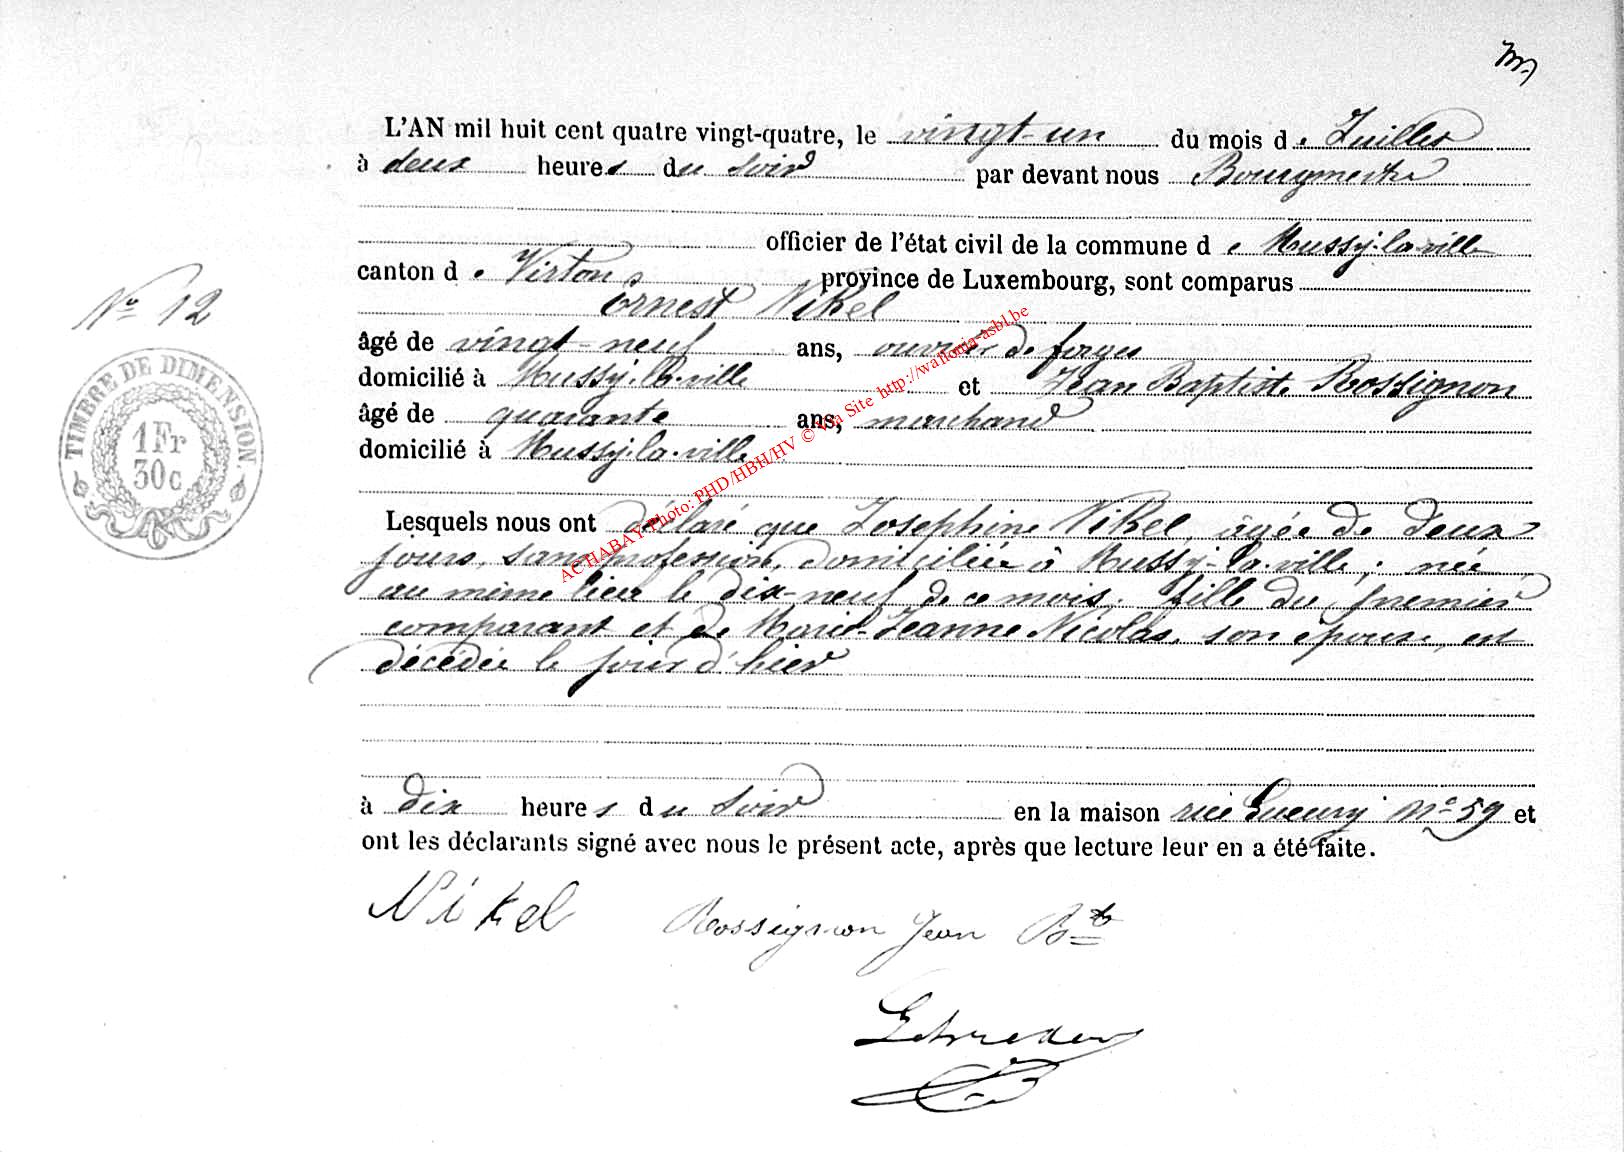 L'AN mil huit cent quatre vingt-quatre, le vingt-un du mois de Juillet
à deux heures du soir par devant nous Bourgmestre
officier de l'état civil de la commune de Mussy-la-ville
canton de Virton, province de Luxembourg, sont comparus
Ernest Nikel
N° 12
âgé de vingt-neuf ans, ouvrier de forges
domicilié à Mussy-la-ville et Jean Baptiste Rossignon
âgé de quarante ans, marchand
domicilié à Mussy-la-ville
TIMBRE DE DIMENSION.
1 Fr
30 c
ACHABAY Photo: PHD/HBH/HV © Via Site http://wallonia-asbl.be
Lesquels nous ont déclaré que Josephine Nikel, âgée de deux
jours, sans profession, domiciliée à Mussy-la-ville, née
au même lieu le dix-neuf de ce mois, fille du premier
comparant et de Marie-Jeanne Nicolas, son épouse, est
décédée le jour d'hier
à dix heures du soir en la maison rue N° 59 et
ont les déclarants signé avec nous le présent acte, après que lecture leur en a été faite.
Nikel Rossignon Jean Bte